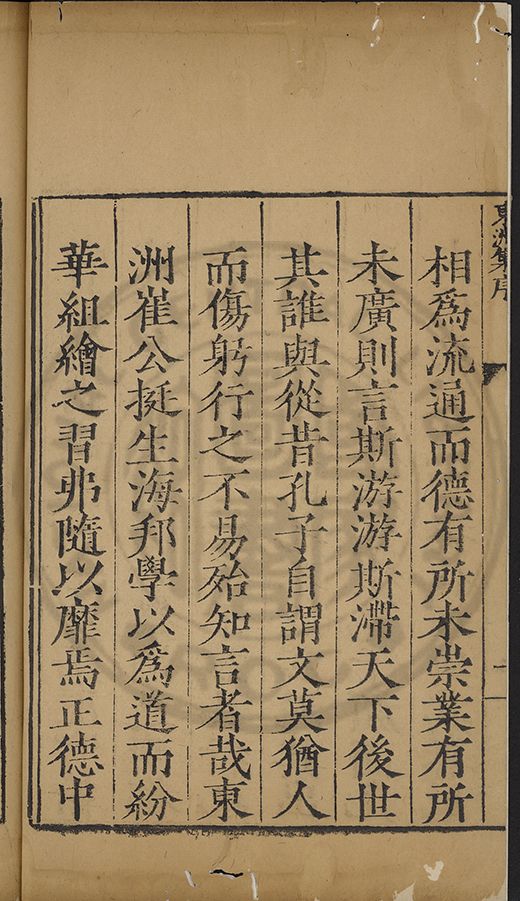 東洲集序
一
相爲流通而德有所未崇業有所
未廣則言斯游游斯滯天下後世
其誰與從昔孔子自謂文莫猶人
而傷躬行之不易殆知言者哉東
洲崔公挺生海邦學以爲道而紛
華組繪之習弗隨以靡焉正德中